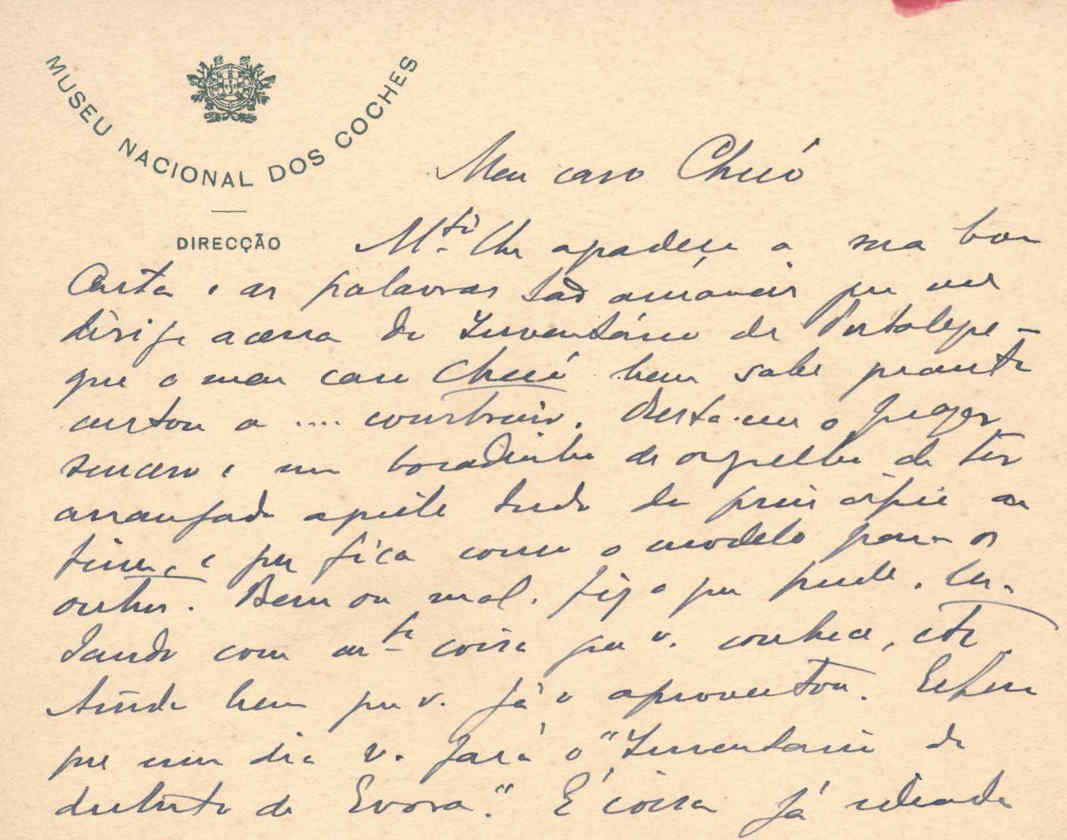 MUSEU NACIONAL DOS COCHES
DIRECÇÃO
Meu caro Chicó
M.to lhe agradeço a sua boa
Carta e as palavras tão amáveis que me
dirige acerca do Inventário de Portalegre –
que o meu caro Chicó bem sabe quanto
custou a .... construir. Resta-me o prazer
sincero e um bocadinho de orgulho de ter
arranjado aquele tudo de principio ao
fim, e que fica como o modelo para os
outros. Bem ou mal, fiz o que pude, lu-
tando com m.ta coisa que v. conhece, etc.
Ainda bem que v. já o aproveitou. Espero
que um dia v. fará o "Inventario do
distrito de Evora." É coisa já